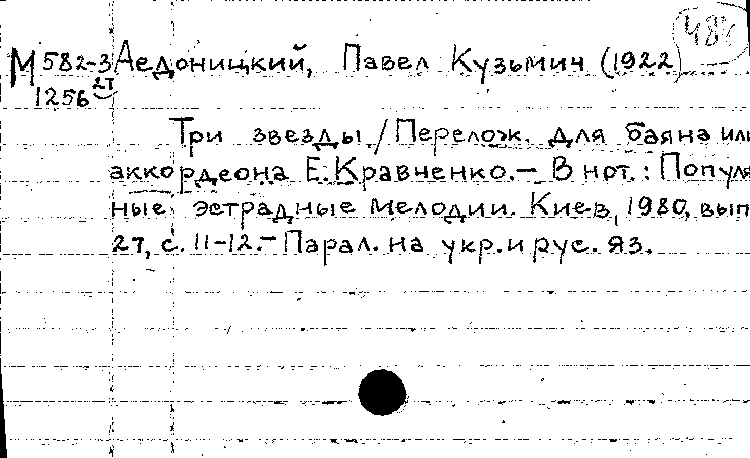 М 582-3 Аедоницкий, Павел Кузьмич (1922
1256 27
Три звезды / Перелож. для баяна или
аккордеона Е. Кравченко. — В нот.: Популя
ные эстрадные мелодии. Киев, 1980, вып
27, с. 11-12. — Парал. на укр. и рус. яз.